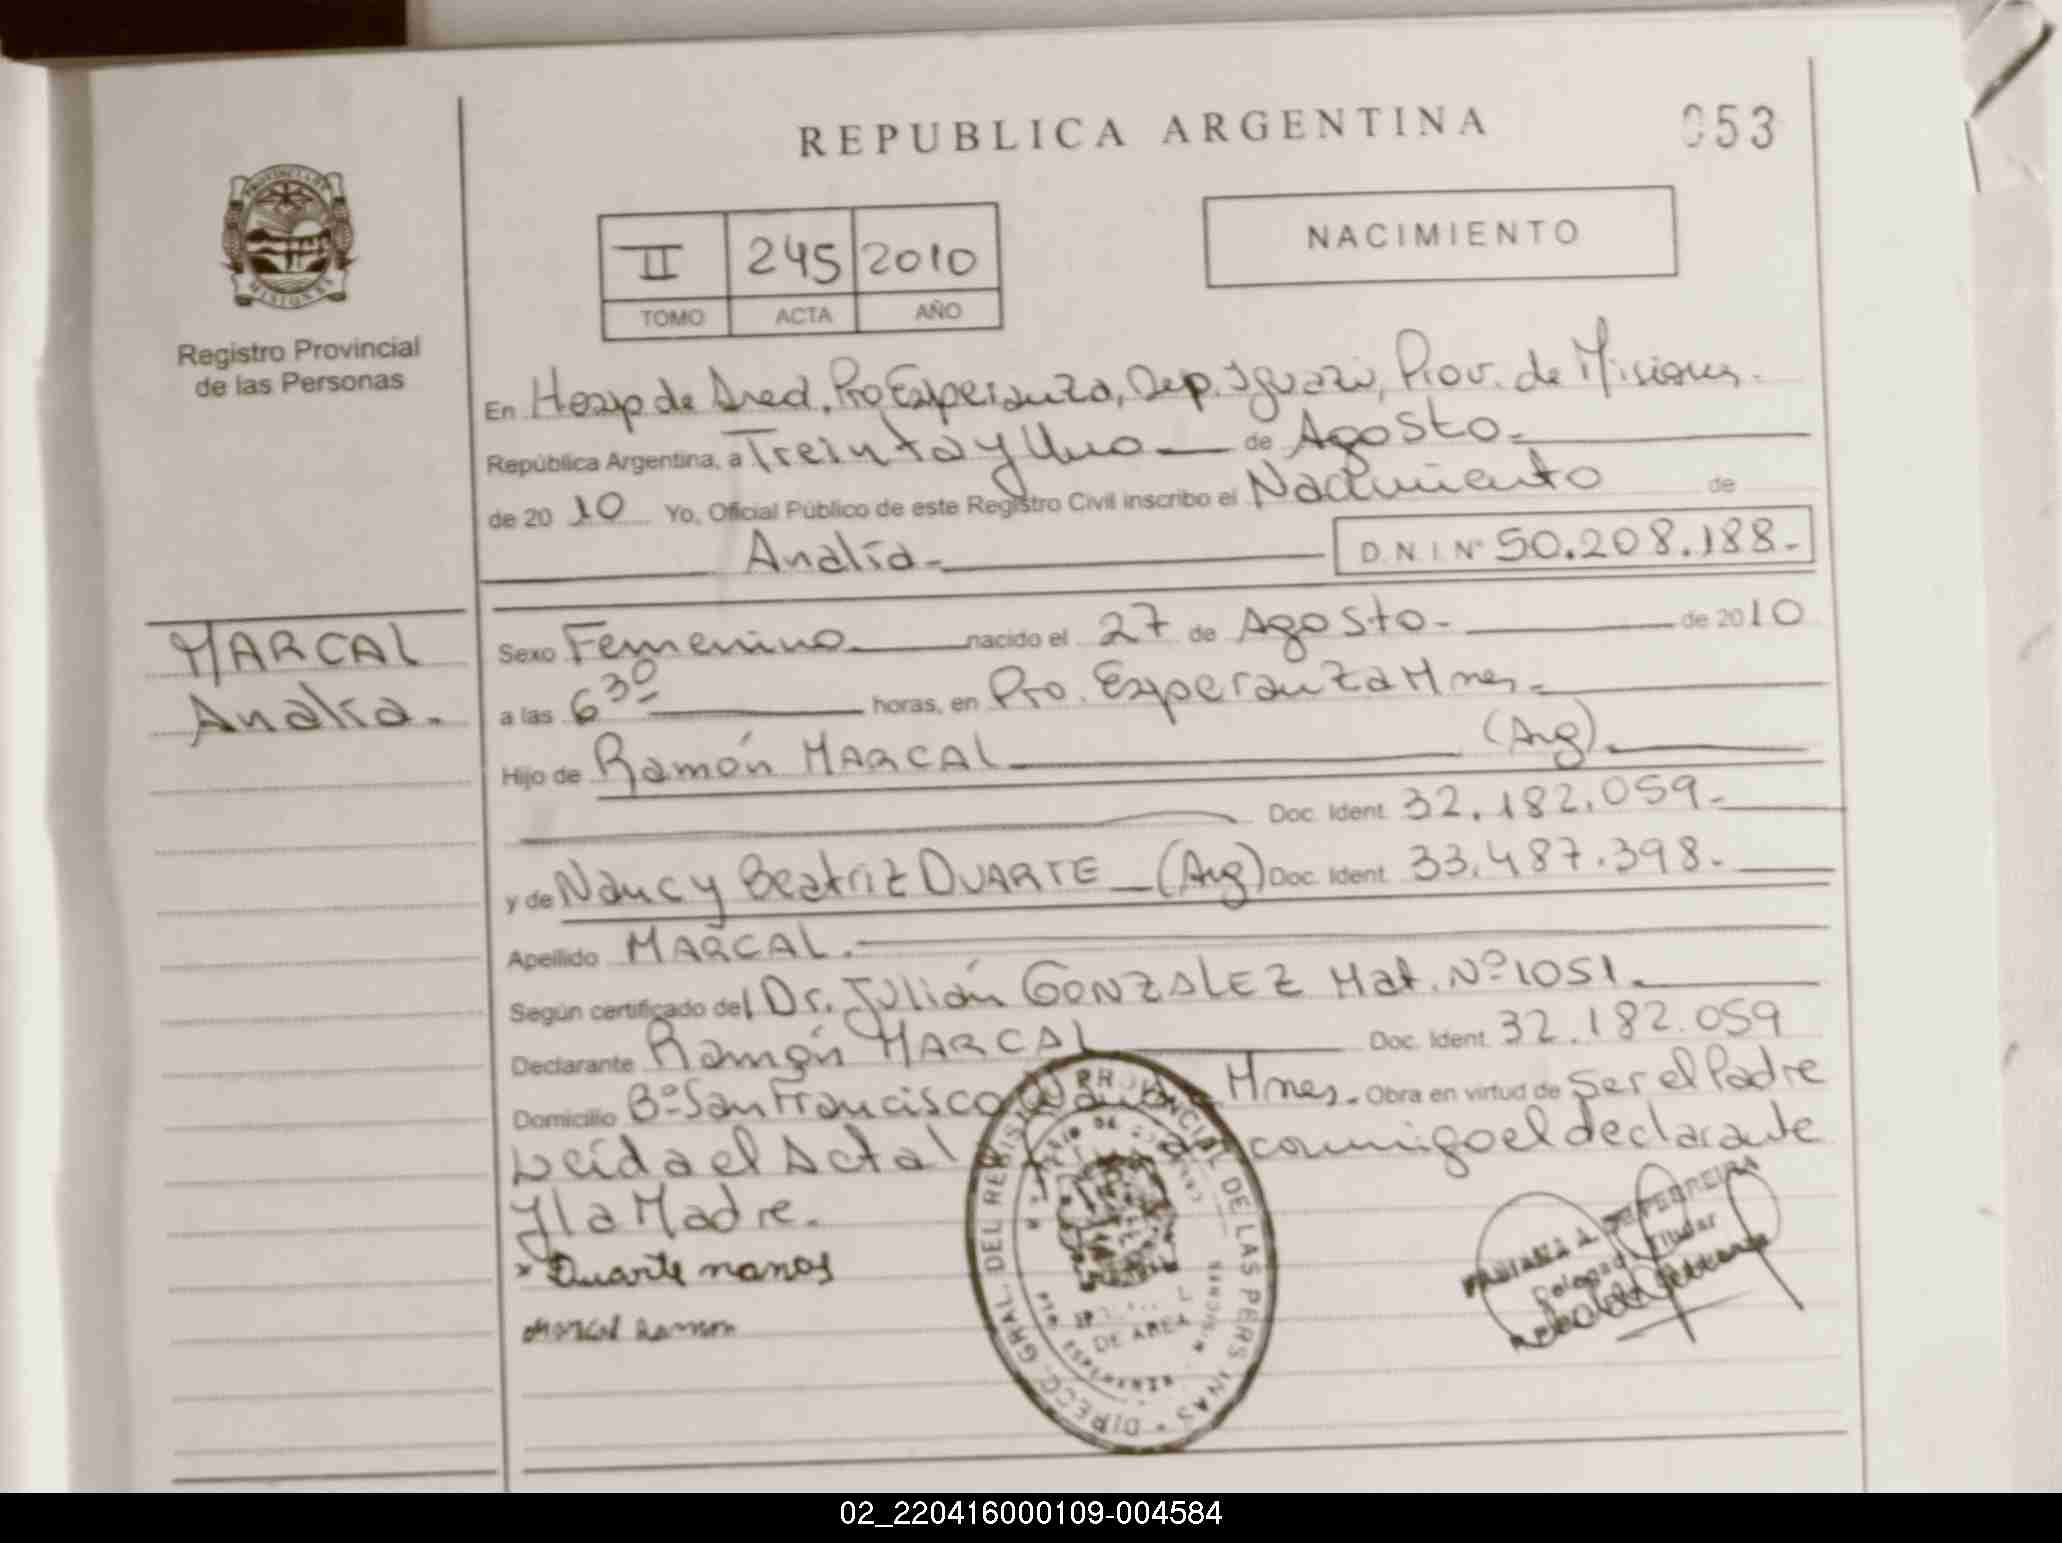 REPUBLICA ARGENTINA
053
PROVINCIA DE
MISIONES
Registro Provincial
de las Personas
II 245 2010
TOMO ACTA AÑO
NACIMIENTO
En Hosp de Area, Pto Esperanza, Dep. Iguazú, Prov. de Misiones.
República Argentina, a Treinta y Uno de Agosto.
de 2010 Yo, Oficial Público de este Registro Civil inscribo el Nacimiento de
Analía.
D.N.I. Nº 50.208.188.-
MARCAL
Analía.
Sexo Femenino nacido el 27 de Agosto. de 2010
a las 6 30 horas, en Pto. Esperanza Mnes.
Hijo de Ramón MARCAL (Arg).
Doc. Ident. 32.182.059.
y de Nancy Beatriz DUARTE (Arg) Doc. Ident. 33.487.398.
Apellido MARCAL.
Según certificado del Dr. Julián GONZALEZ Mat. Nº 1051.
Declarante Ramón MARCAL Doc. Ident. 32.182.059
Domicilio Bº San Francisco Mnes. Obra en virtud de Ser el Padre
Leida el Acta conmigo el declarante
y la Madre.
Duarte nancy
Marcal Ramon
DIRECC. GRAL. DEL REGISTRO PROVINCIAL DE LAS PERSONAS
DE AREA
MISIONES
FERREIRA
Titular
02_220416000109-004584